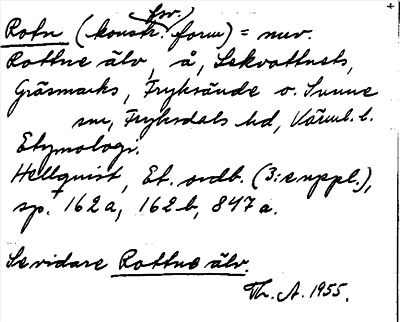 fsv.
Rotn (konstr. form) = nuv.
Rottne älv, å, Lekvattnets,
Gräsmarks, Fryksände o. Sunne
snr, Fryksdals hd, Värml. l.
Etymologi.
Hellquist, Et. ordb. (3:e uppl.),
sp. 162 a, 162 b, 847 a.
Se vidare Rottne älv.
Th. A. 1955.